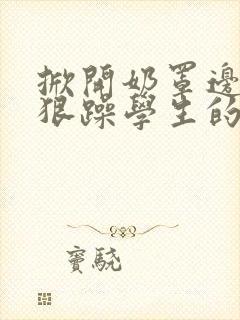 掀開奶罩邊
狠躁學生的
竇驍